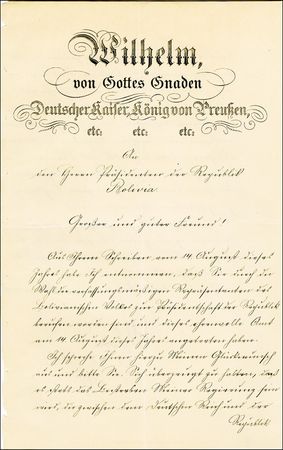 Wilhelm,
von Gottes Gnaden
Deutscher Kaiser, König von Preußen,
etc. etc. etc.
An
den Herrn Präsidenten der Republik
Bolivia.
Großer und guter Freund!
Aus Ihrem Schreiben vom 14 August dieses
Jahres habe Ich entnommen, daß Sie durch die
Wahl der verfassungsmäßigen Repräsentanten des
Bolivianischen Volkes zur Präsidentschaft der Republik
berufen worden sind und dieses ehrenvolle Amt
am 14 August dieses Jahres angetreten haben.
Ich spreche Ihnen hierzu Meinen Glückwunsch
aus und bitte Sie, Sich überzeugt zu halten, daß
es stets das Bestreben Meiner Regierung sein
wird, die zwischen dem Deutschen Reich und der
Republik